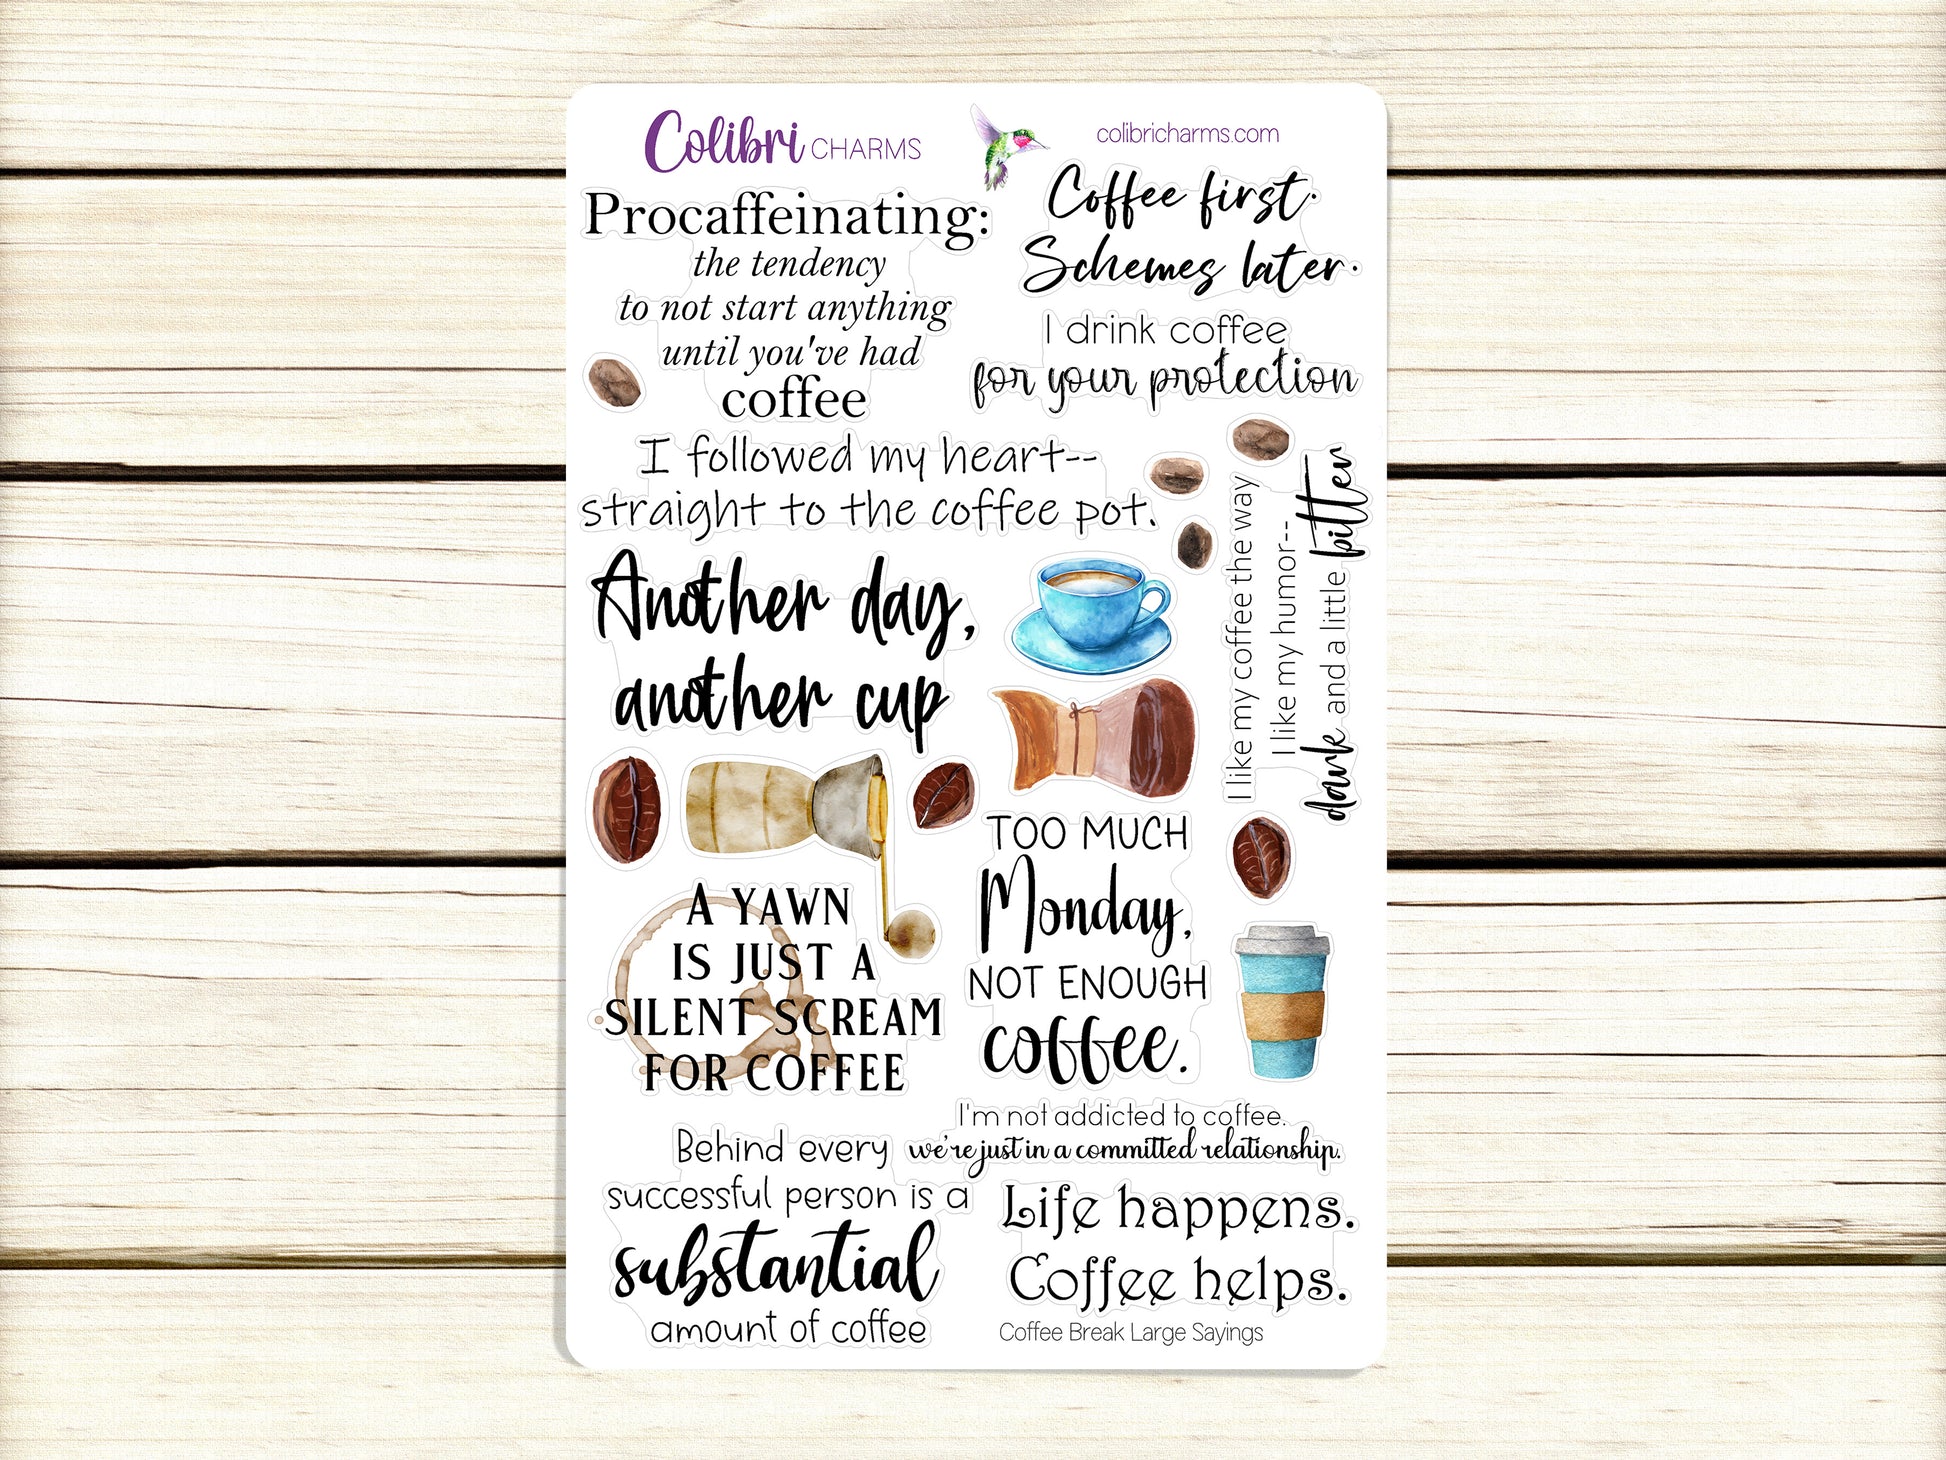 Colibri CHARMS
colibricharms.com
Procaffeinating:
the tendency
to not start anything
until you've had
coffee
Coffee first.
Schemes later.
I drink coffee
for your protection
I followed my heart--
straight to the coffee pot.
I like my coffee the way
I like my humor--
dark and a little bitter
Another day,
another cup
TOO MUCH
Monday,
NOT ENOUGH
coffee.
A YAWN
IS JUST A
SILENT SCREAM
FOR COFFEE
I'm not addicted to coffee.
we're just in a committed relationship.
Behind every
successful person is a
substantial
amount of coffee
Life happens.
Coffee helps.
Coffee Break Large Sayings